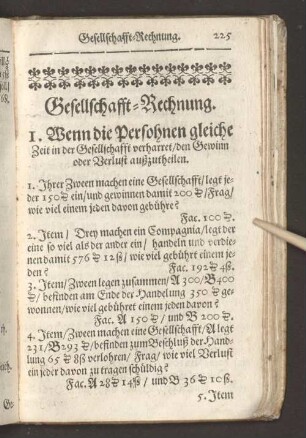 Gesellschafft-Rechnung. 225
Gesellschafft-Rechnung.
1. Wenn die Persohnen gleiche
Zeit in der Gesellschafft verharret/den Gewinn
oder Verlust außzutheilen.
1. Ihrer Zween machen eine Gesellschafft/legt je-
der 150 ₰ ein/und gewinnen damit 200 ₰/Frag/
wie viel einem jeden davon gebühre?
Fac. 100 ₰.
2. Item/ Drey machen ein Compagnia/legt der
eine so viel als der ander ein/ handeln und verdie-
nen damit 576 ₰ 12 ß/ wie viel gebührt einem je-
den? Fac. 192 ₰ 4 ß.
3. Item/Zween legen zusammen/A 300/B 400
₰/ befinden am Ende der Handelung 350 ₰ ge-
wonnen/wie viel gebühret einem jeden davon?
Fac. A 150 ₰/ und B 200 ₰.
4. Item/Zween machen eine Gesellschafft/A legt
231/B 293 ₰/befinden zum Beschluß der Hand-
lung 65 ₰ 8 ß verlohren/ Frag/ wie viel Verlust
ein jeder davon zu tragen schüldig?
Fac. A 28 ₰ 14 ß/ und B 36 ₰ 10 ß.
5. Item